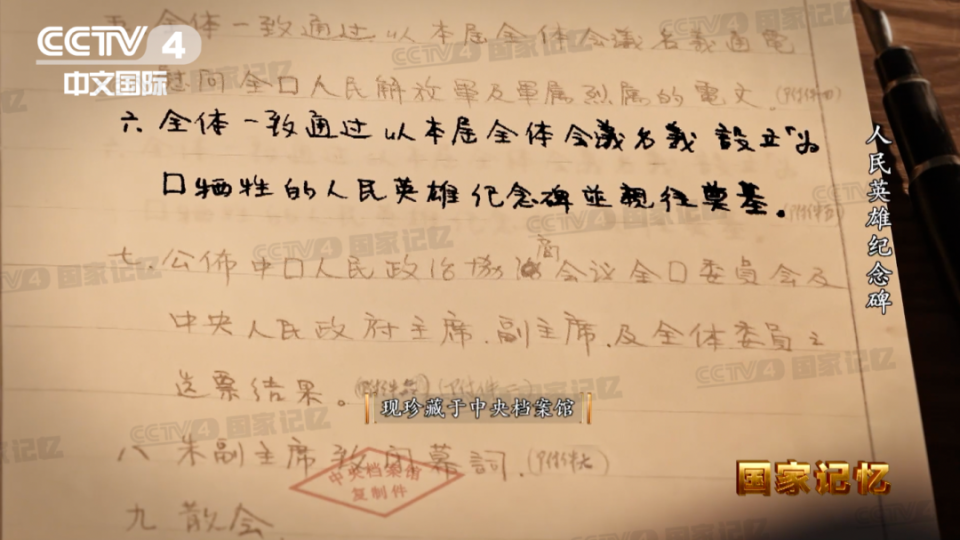 CCTV 4
中文国际
五、全体一致通过以本届全体会議名義通電
慰问全口人民解放軍及軍属烈属的電文。(附件四)
六、全体一致通过以本届全体会議名義設立"为
口牺牲的人民英雄紀念碑並親往奠基。(附件五)
七、公佈中口人民政治協商会议全口委員会及
中央人民政府主席、副主席、及全体委員之
选票结果。
八 朱副主席致闭幕詞、
九 散会
人民英雄纪念碑
现珍藏于中央档案馆
中央档案馆
复制件
国家记忆
CCTV4 国家记忆